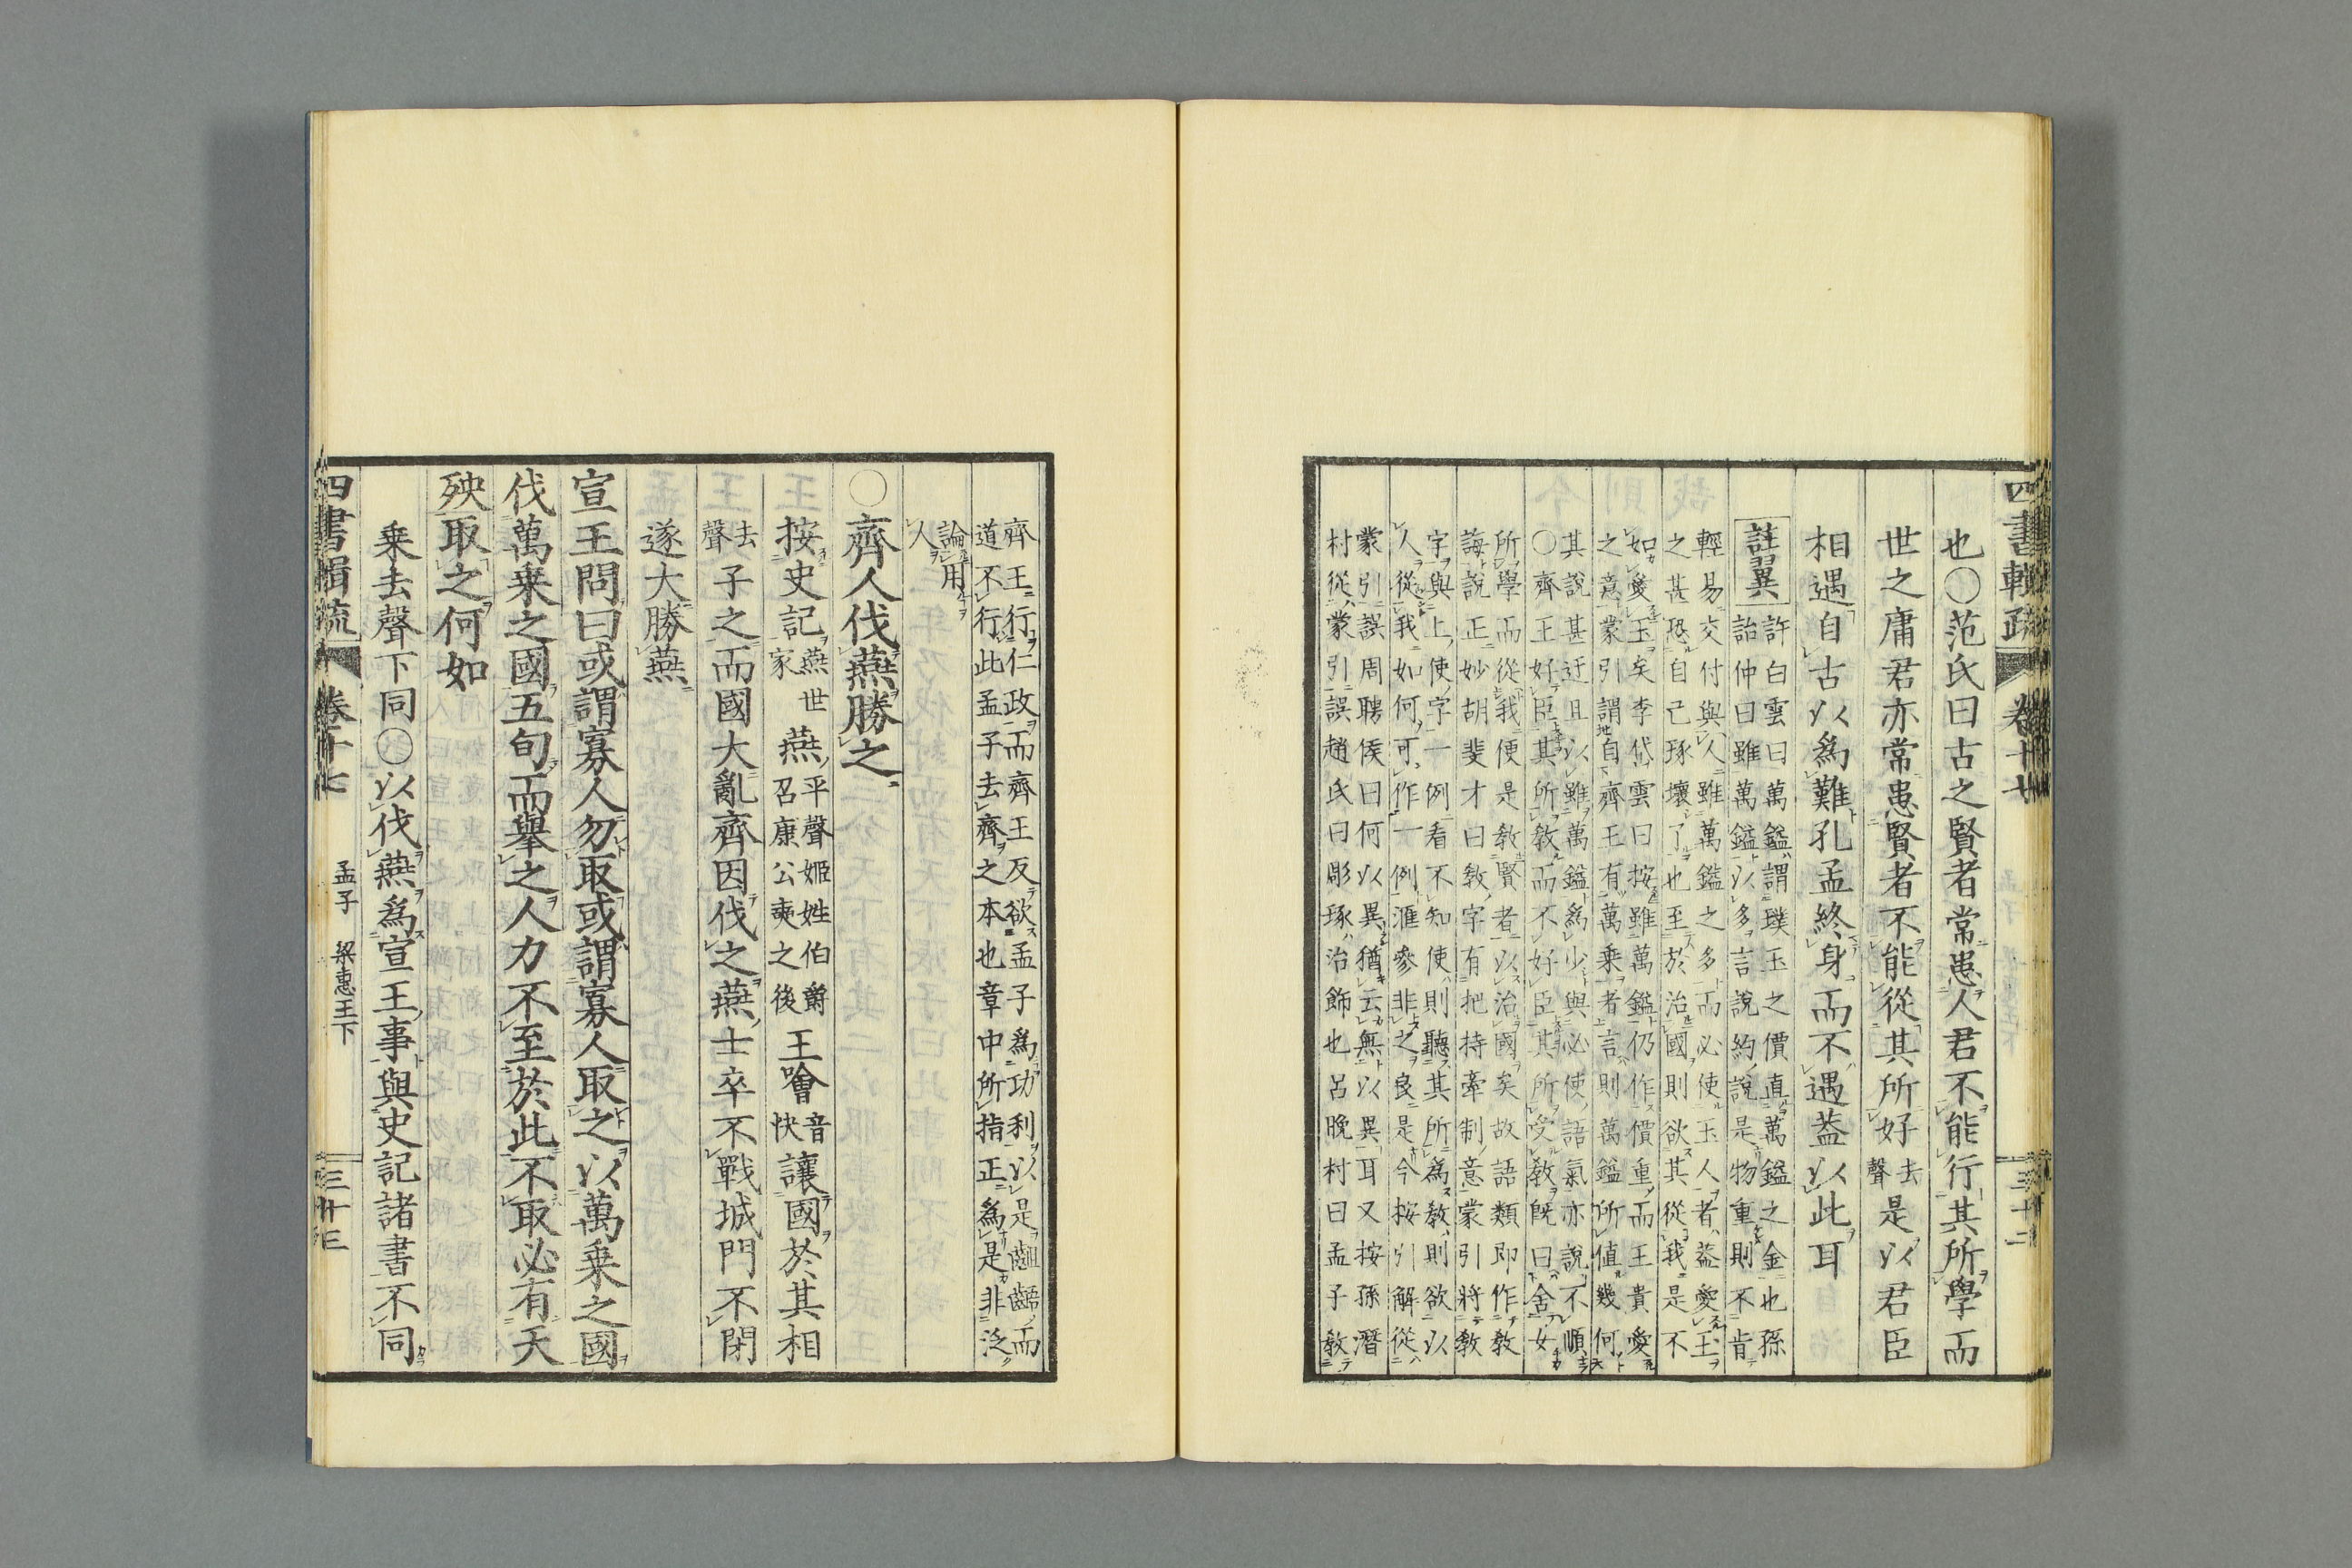 四書輯疏 卷十七 三十二
也〇范氏曰古之賢者常患人君不能行其所學而
世之庸君亦常患賢者不能從其所好去聲是以君臣
相遇自古以爲難孔孟終身而不遇蓋以此耳
註翼
許白雲曰萬鎰謂璞玉之價直萬鎰之金也孫
詒仲曰雖萬鎰以多言說約說是物重則不肯
輕易交付與人雖萬鎰之多而必使玉人者蓋愛玉
之甚恐自己琢壞了也至於治國則欲其從我是不
如愛玉矣李岱雲曰按雖萬鎰仍作價重而王貴愛
之意蒙引謂自齊王有萬乗者言則萬鎰所値幾何
其說甚迂且以雖萬鎰爲少與必使語氣亦說不順
〇齊王好臣其所教而不好臣其所受教旣曰舍女
所學而從我便是教賢者以治國矣故語類即作教
誨說正妙胡斐才曰教字有把持牽制意蒙引將教
字與上使字一例看不知使則聽其所爲教則欲以
人從我如何可作一例滙參非之良是今按引解從
蒙引誤周聘侯曰何以異猶云無以異耳又按孫潛
村從蒙引誤趙氏曰彫琢治飾也呂晚村曰孟子教
齊王行仁政而齊王反欲孟子爲功利以是齟齬而
道不行此孟子去齊之本也章中所指正爲是非泛
論用
人
〇齊人伐燕勝之
按史記燕世家燕平聲姬姓伯爵召康公奭之後王噲音快讓國於其相
子之去聲而國大亂齊因伐之燕士卒不戰城門不閉
遂大勝燕
宣王問曰或謂寡人勿取或謂寡人取之以萬乗之國
伐萬乗之國五旬而舉之人力不至於此不取必有天
殃取之何如
乗去聲下同〇以伐燕爲宣王事與史記諸書不同
四書輯疏 卷十七 孟子 梁惠王下 三十三